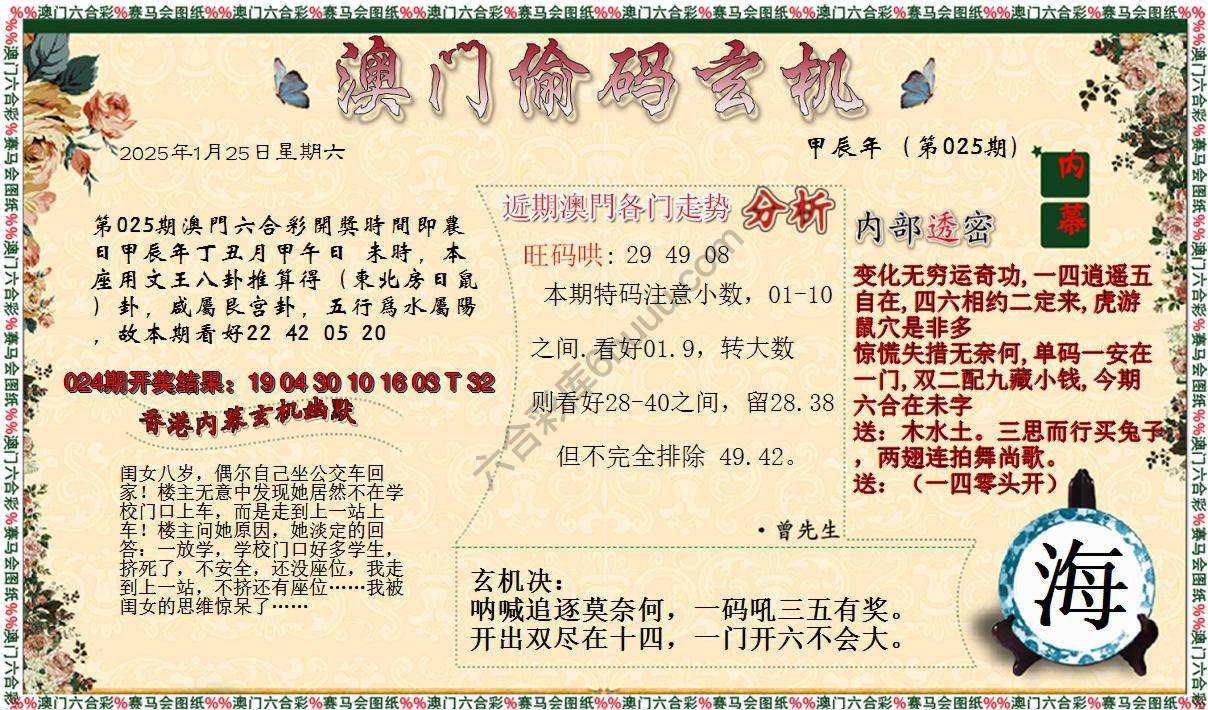 %%澳门六合彩%赛马会图纸%%澳门六合彩%赛马会图纸%%澳门六合彩%赛马会图纸%%澳门六合彩%赛马会图纸%%澳门六合彩%赛马会图纸%%澳门六合彩%赛马会图纸%%
澳门偷码玄机
2025年1月25日星期六
甲辰年（第025期）
内幕
第025期澳門六合彩開獎時間即農
日甲辰年丁丑月甲午日 未時，本
座用文王八卦推算得（東北房日鼠
）卦，咸屬艮宫卦，五行爲水屬陽
，故本期看好22 42 05 20
024期开奖结果：19 04 30 10 16 03 T 32
香港内幕玄机幽默
闺女八岁，偶尔自己坐公交车回
家！楼主无意中发现她居然不在学
校门口上车，而是走到上一站上
车！楼主问她原因，她淡定的回
答：一放学，学校门口好多学生，
挤死了，不安全，还没座位，我走
到上一站，不挤还有座位……我被
闺女的思维惊呆了……
近期澳門各门走势 分析
旺码哄: 29 49 08
本期特码注意小数，01-10
之间.看好01.9，转大数
则看好28-40之间，留28.38
但不完全排除 49.42。
·曾先生
内部透密
变化无穷运奇功,一四逍遥五
自在,四六相约二定来,虎游
鼠穴是非多
惊慌失措无奈何,单码一安在
一门,双二配九藏小钱,今期
六合在未字
送：木水土。三思而行买兔子
，两翅连拍舞尚歌。
送：（一四零头开）
玄机决：
呐喊追逐莫奈何，一码吼三五有奖。
开出双尽在十四，一门开六不会大。
海
%%澳门六合彩%赛马会图纸%%澳门六合彩%赛马会图纸%%澳门六合彩%赛马会图纸%%澳门六合彩%赛马会图纸%%澳门六合彩%赛马会图纸%%澳门六合彩%赛马会图纸%%